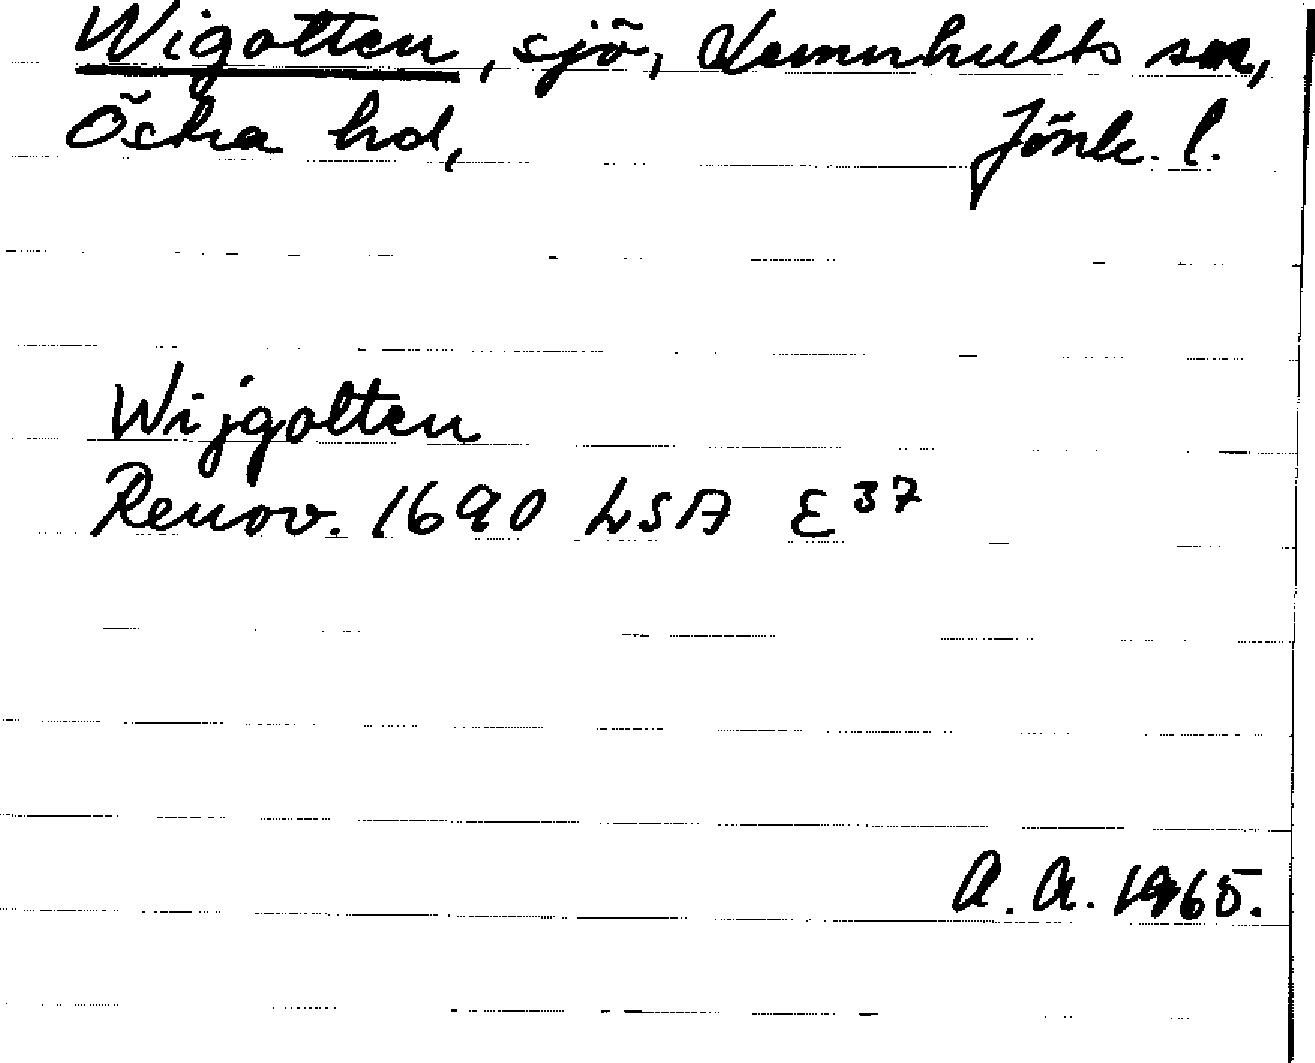 Wigotten, sjö, Lemnhults sn,
Östra hd, Jönk. l.
Wijgolten
Renov. 1690 LSA E 37
A. A. 1965.